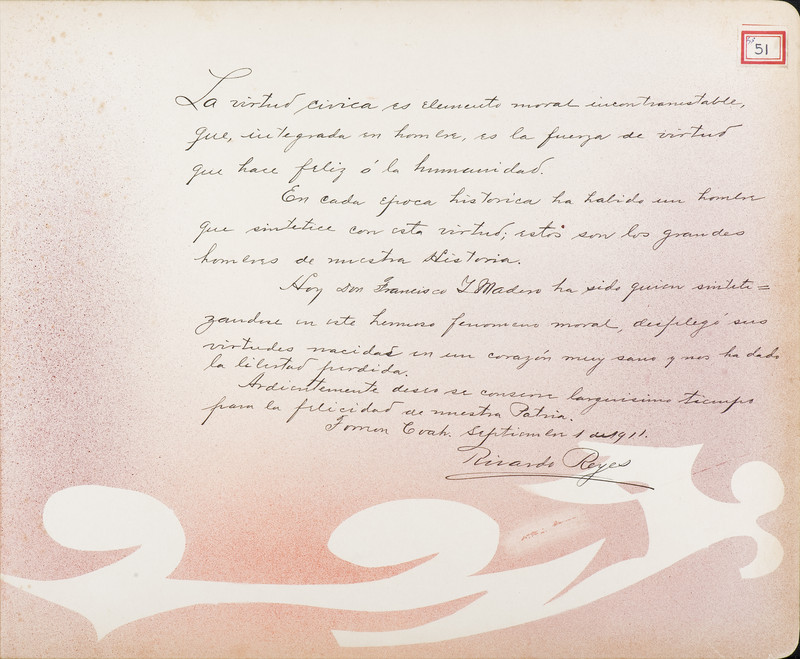 51
La virtud civica es elemento moral incontranestable,
que, integrada en hombre, es la fuerza de virtud
que hace feliz á la humanidad.
En cada epoca historica ha habido un hombre
que sintetice con esta virtud; estos son los grandes
hombres de nuestra Historia.
Hoy Don Francisco I Madero ha sido quien sinteti=
zandose en este hermoso fenomeno moral, desplegó sus
virtudes nacidas en un corazón muy sano y nos ha dado
la libertad perdida.
Ardientemente deseo se conserve larguisimo tiempo
para la felicidad de nuestra Patria.
Torreon Coah. Septiembre 1 de 1911.
Ricardo Reyes